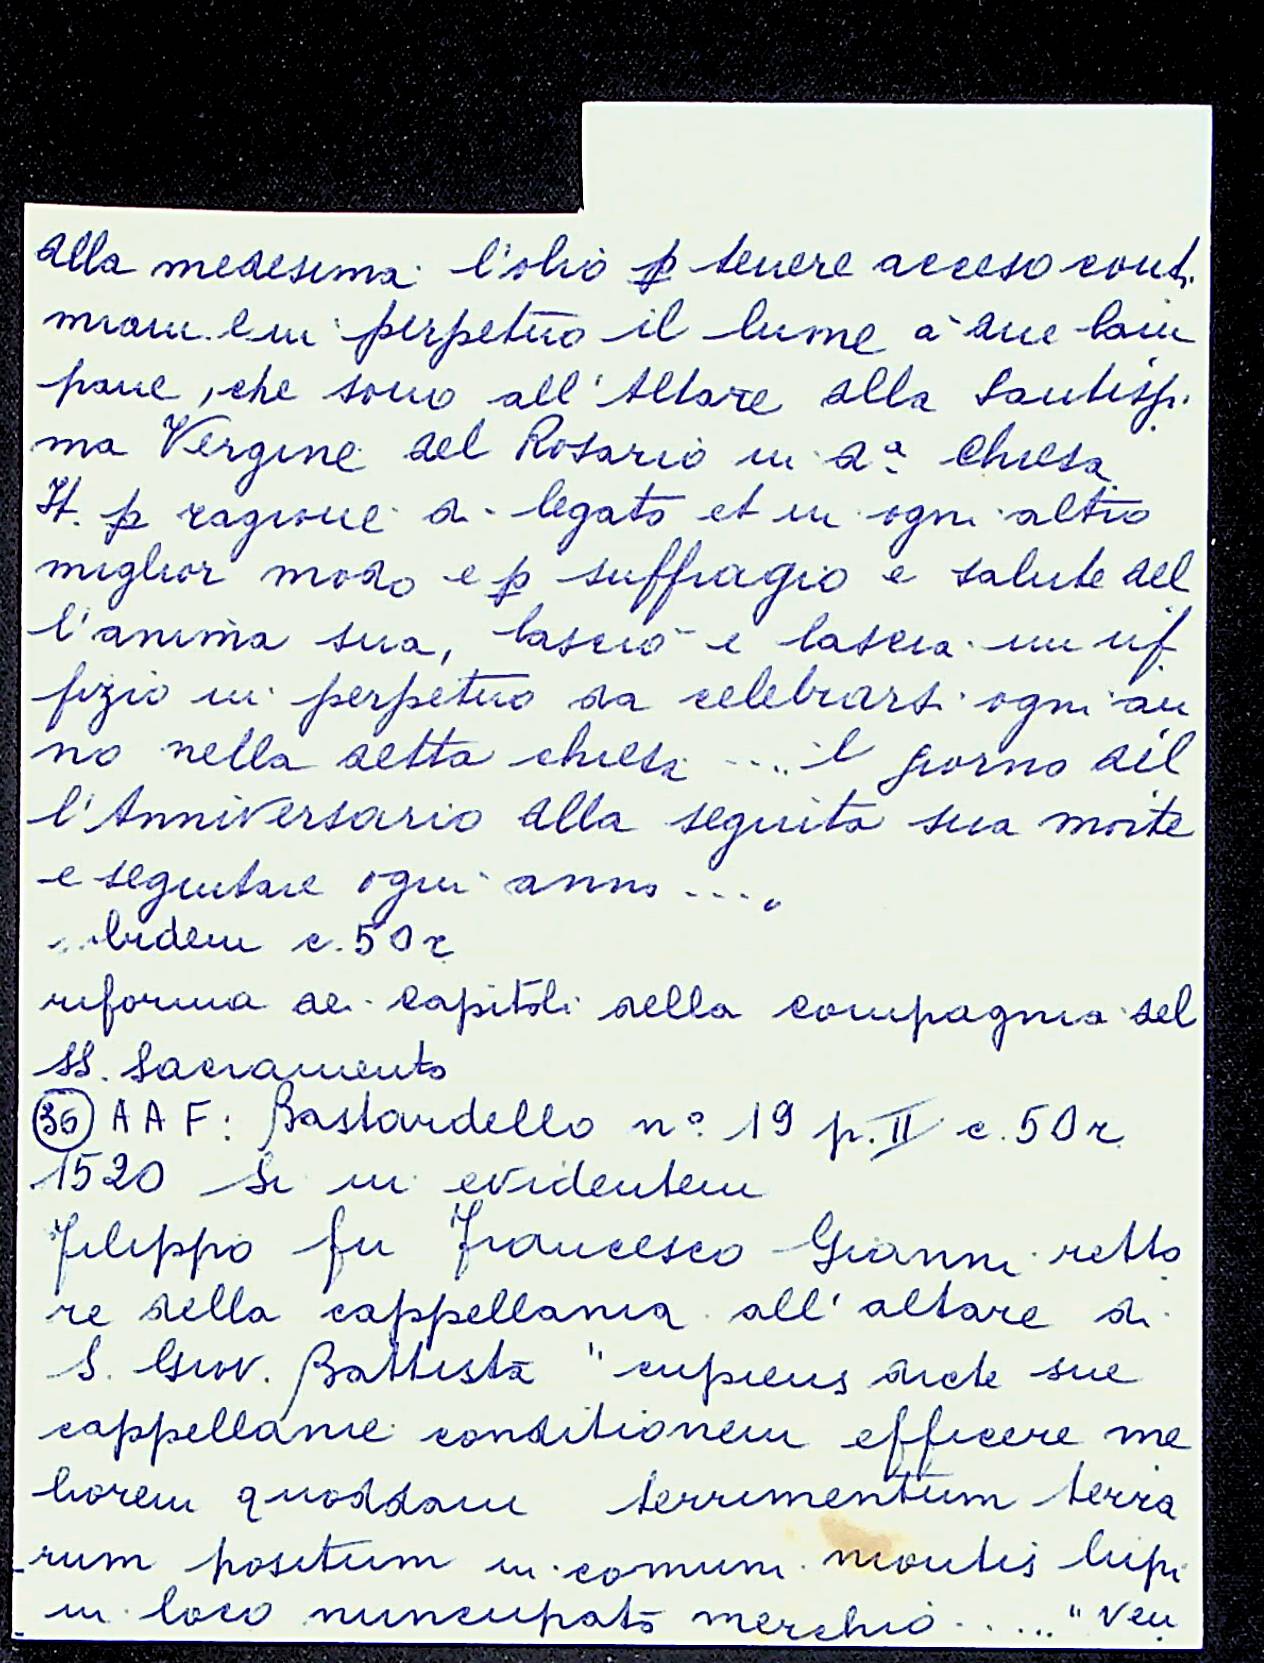 alla medesima l'olio p tenere acceso conti
nuam. e in perpetuo il lume a due lam
pane, che sono all'Altare alla Santissi
ma Vergine del Rosario in d.ª Chiesa
It. p ragione di legato et in ogni altro
miglior modo e p suffragio e salute del
l'anima sua, lasciò e lascia un uf
fizio in perpetuo da celebrarsi ogni an
no nella detta chiesa .... il giorno del
l'Anniversario alla seguita sua morte
e seguitare ogni anno ....
Ibidem c. 50 r
riforma dei capitoli della compagnia del
SS. Sacramento
36 AAF: Bastardello n° 19 p. II c. 50 r
1520 Si in evidentem
Filippo fu Francesco Gianni retto
re della cappellania all'altare di
S. Giov. Battista "cupiens dicte sue
cappellanie conditionem efficere me
liorem quoddam terrimentum terra
rum positum in comuni montis lupi
in loco nuncupato merchio ....." ven